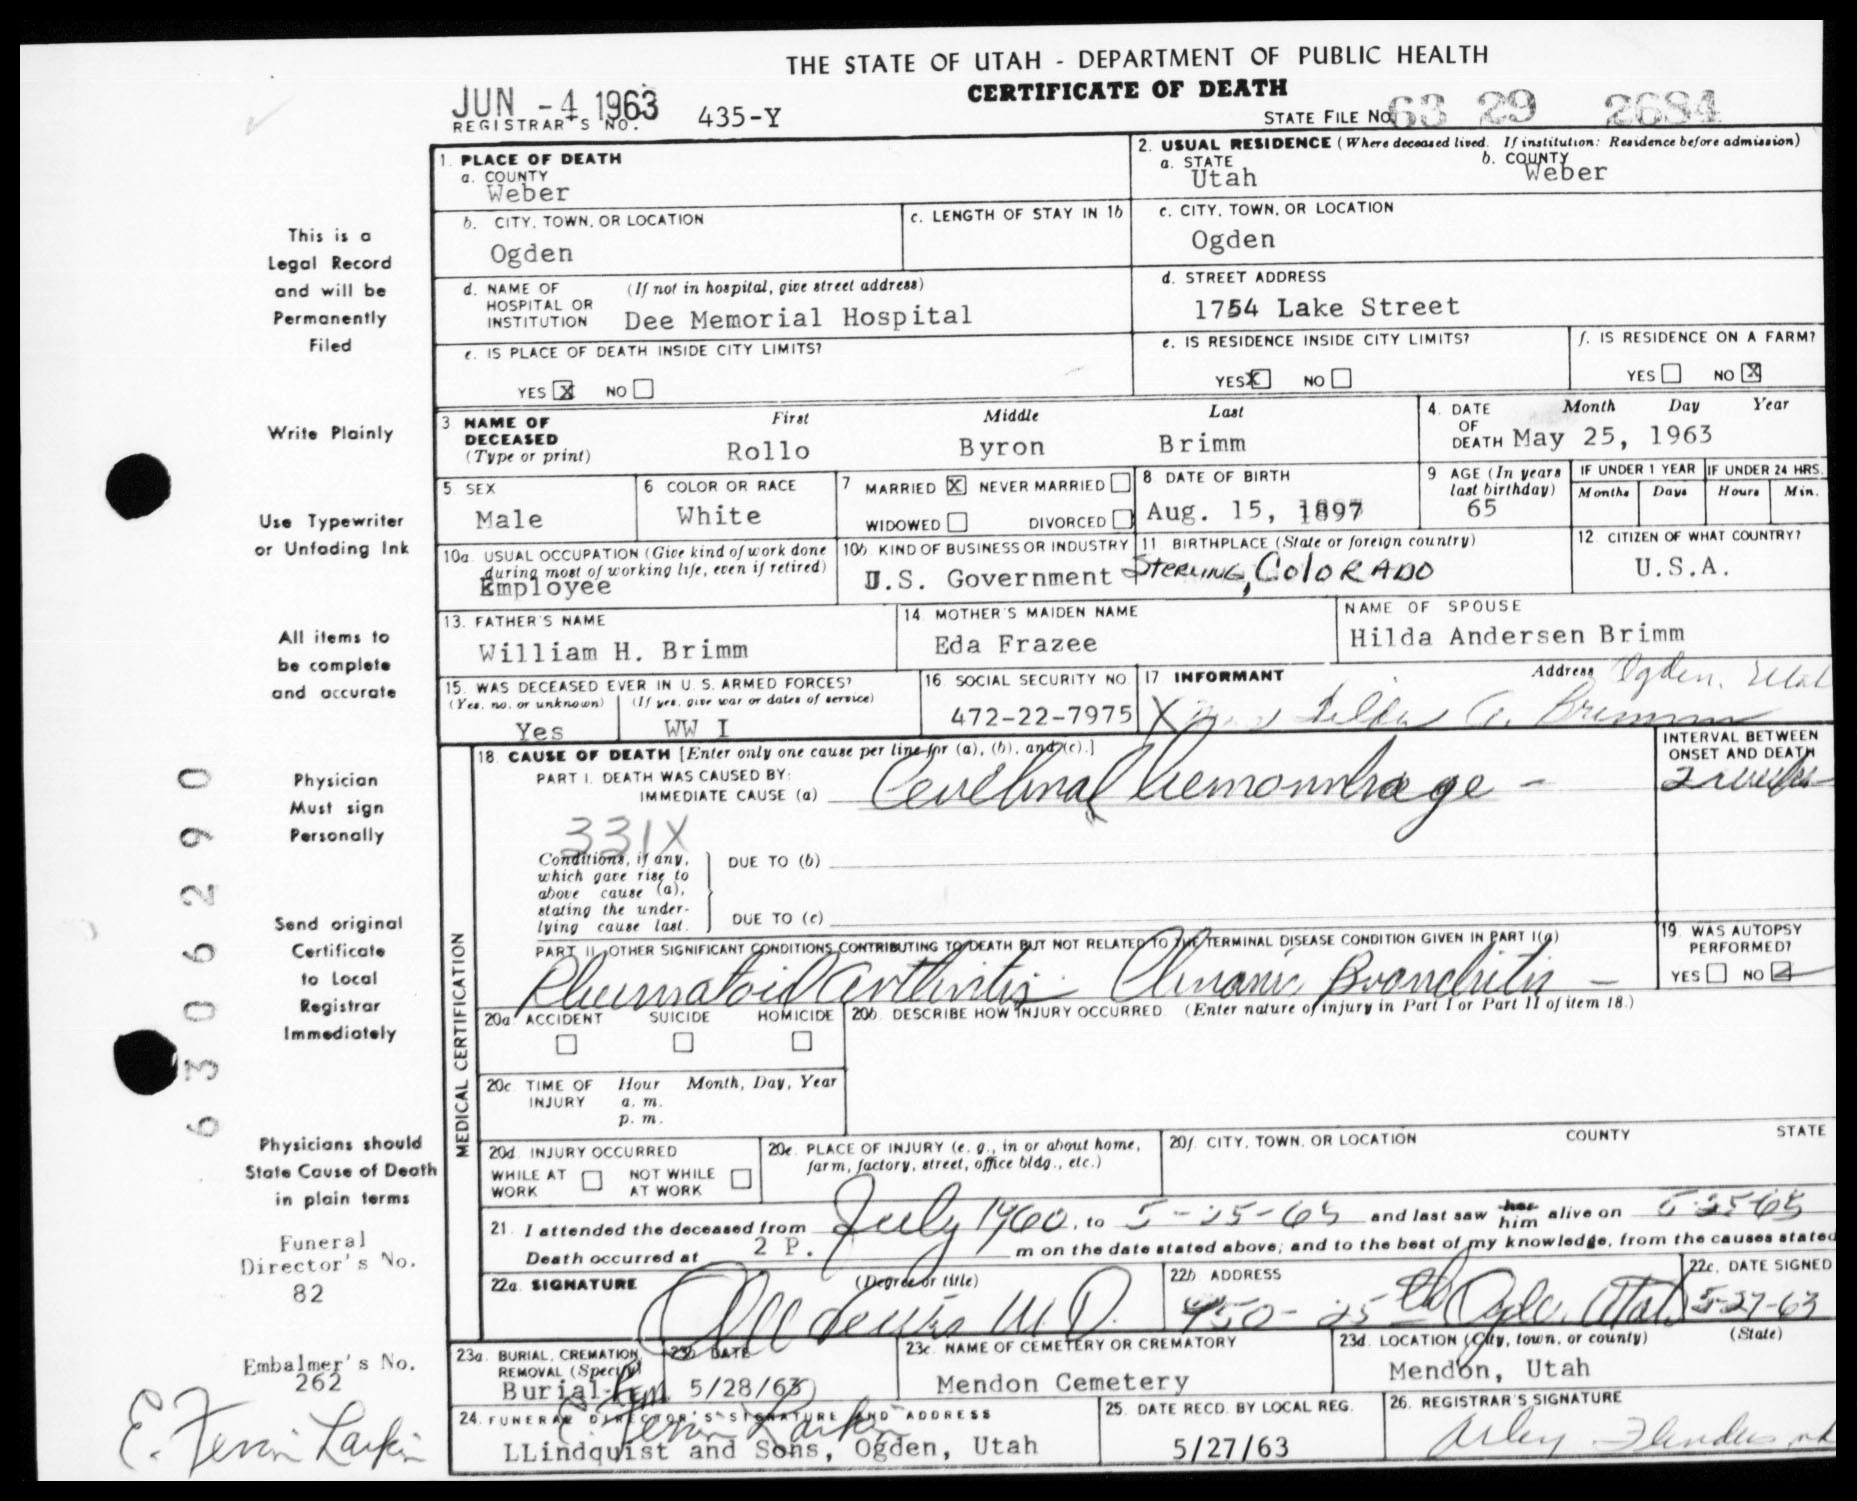 THE STATE OF UTAH - DEPARTMENT OF PUBLIC HEALTH
CERTIFICATE OF DEATH
JUN -4 1963
REGISTRAR'S NO. 435-Y
STATE FILE NO. 63 29 2684
1. PLACE OF DEATH
a. COUNTY
Weber
2. USUAL RESIDENCE (Where deceased lived. If institution: Residence before admission)
a. STATE
Utah
b. COUNTY
Weber
b. CITY, TOWN, OR LOCATION
Ogden
c. LENGTH OF STAY IN 1b
c. CITY, TOWN, OR LOCATION
Ogden
d. NAME OF HOSPITAL OR INSTITUTION
(If not in hospital, give street address)
Dee Memorial Hospital
d. STREET ADDRESS
1754 Lake Street
e. IS PLACE OF DEATH INSIDE CITY LIMITS?
YES X NO
e. IS RESIDENCE INSIDE CITY LIMITS?
YES X NO
f. IS RESIDENCE ON A FARM?
YES NO X
3 NAME OF DECEASED
(Type or print)
First Middle Last
Rollo Byron Brimm
4. DATE OF DEATH
Month Day Year
May 25, 1963
5. SEX
Male
6 COLOR OR RACE
White
7 MARRIED X NEVER MARRIED
WIDOWED DIVORCED
8 DATE OF BIRTH
Aug. 15, 1897
9 AGE (In years last birthday)
65
IF UNDER 1 YEAR
Months Days
IF UNDER 24 HRS.
Hours Min.
10a. USUAL OCCUPATION (Give kind of work done during most of working life, even if retired)
Employee
10b. KIND OF BUSINESS OR INDUSTRY
U.S. Government
11 BIRTHPLACE (State or foreign country)
STERLING, COLORADO
12. CITIZEN OF WHAT COUNTRY?
U.S.A.
13. FATHER'S NAME
William H. Brimm
14 MOTHER'S MAIDEN NAME
Eda Frazee
NAME OF SPOUSE
Hilda Andersen Brimm
15. WAS DECEASED EVER IN U.S. ARMED FORCES?
(Yes, no, or unknown) (If yes, give war or dates of service)
Yes WW I
16. SOCIAL SECURITY NO.
472-22-7975
17 INFORMANT Address
Ogden, Utah
X Hilda A. Brimm
18. CAUSE OF DEATH [Enter only one cause per line for (a), (b), and (c).]
PART I. DEATH WAS CAUSED BY:
IMMEDIATE CAUSE (a) Cerebral hemorrhage -
INTERVAL BETWEEN ONSET AND DEATH
2 weeks
331X
Conditions, if any, which gave rise to above cause (a), stating the underlying cause last.
DUE TO (b)
DUE TO (c)
PART II. OTHER SIGNIFICANT CONDITIONS CONTRIBUTING TO DEATH BUT NOT RELATED TO THE TERMINAL DISEASE CONDITION GIVEN IN PART I(a)
Rheumatoid arthritis Chronic Bronchitis -
19. WAS AUTOPSY PERFORMED?
YES NO
20a. ACCIDENT SUICIDE HOMICIDE
20b. DESCRIBE HOW INJURY OCCURRED (Enter nature of injury in Part I or Part II of item 18.)
20c. TIME OF INJURY
Hour Month, Day, Year
a. m.
p. m.
20d. INJURY OCCURRED
WHILE AT WORK NOT WHILE AT WORK
20e. PLACE OF INJURY (e. g., in or about home, farm, factory, street, office bldg., etc.)
20f. CITY, TOWN, OR LOCATION COUNTY STATE
21. I attended the deceased from July 1960, to 5-25-63 and last saw her him alive on 5-25-63
Death occurred at 2 P. m on the date stated above; and to the best of my knowledge, from the causes stated
22a. SIGNATURE (Degree or title)
M.D.
22b. ADDRESS
450-25th Ogden, Utah
22c. DATE SIGNED
5-27-63
23a. BURIAL, CREMATION, REMOVAL (Specify)
Burial
23b. DATE
5/28/63
23c. NAME OF CEMETERY OR CREMATORY
Mendon Cemetery
23d. LOCATION (City, town, or county) (State)
Mendon, Utah
24. FUNERAL DIRECTOR'S SIGNATURE AND ADDRESS
E. Fervin Larkin
LLindquist and Sons, Ogden, Utah
25. DATE RECD. BY LOCAL REG.
5/27/63
26. REGISTRAR'S SIGNATURE
MEDICAL CERTIFICATION
This is a
Legal Record
and will be
Permanently
Filed
Write Plainly
Use Typewriter
or Unfading Ink
All items to
be complete
and accurate
Physician
Must sign
Personally
Send original
Certificate
to Local
Registrar
Immediately
Physicians should
State Cause of Death
in plain terms
Funeral
Director's No.
82
Embalmer's No.
262
E. Fervin Larkin
63306290